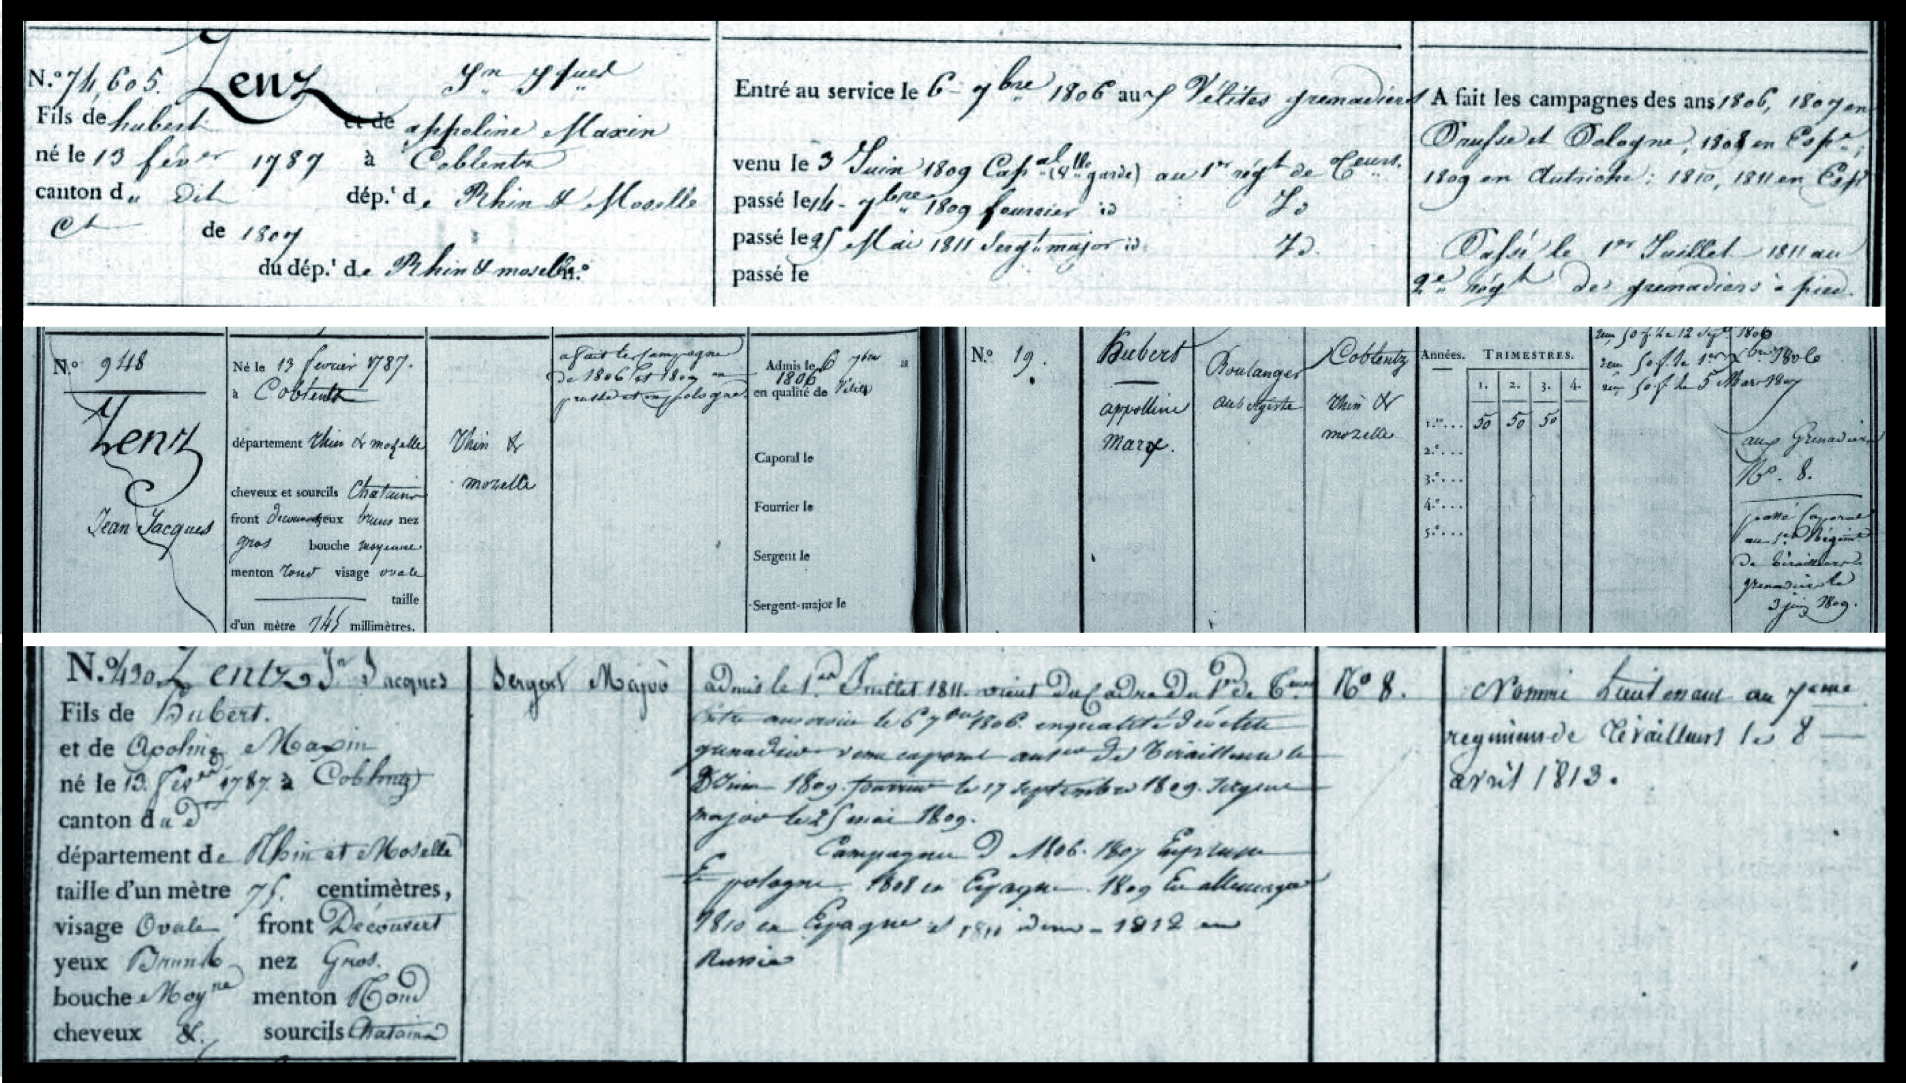 N.° 74,605. Zenz Jn Jques
Fils de hubert et de appoline Maxin
né le 13 féver 1787 à Coblentz
canton du dit dép.t de Rhin & Moselle
Ct de 1807
du dép.t de Rhin & moselle n.°
Entré au service le 6 7bre 1806 aux Vélites grenadiers
venu le 3 Juin 1809 Capal (Vlle garde) au 1er régt de Teurs.
passé le 14 7bre 1809 fourrier id Id
passé le 25 Mai 1811 Sergt major id Id.
passé le
A fait les campagnes des ans 1806, 1807 en
Prusse et Pologne, 1808 en Espe;
1809 en Autriche; 1810, 1811 en Esp
Passé le 1er Juillet 1811 au
2e régt de grenadiers à pied.
N.° 948
Zenz
Jean Jacques
Né le 13 fevrier 1787.
à Coblentz
département rhin & mozelle
cheveux et sourcils Chatains
front decouvert yeux bruns nez
gros bouche moyenne
menton rond visage ovale
taille
d'un mètre 745 millimètres.
rhin &
mozelle
a fait les campagne
de 1806 et 1807 en
prusse et en pologne
Admis le 6 7bre
1806
en qualité de Vélite
Caporal le
Fourrier le
Sergent le
Sergent-major le
N.° 19.
Hubert
appolline
Marx.
Boulanger
aubergiste
Coblentz
rhin &
mozelle
Années. TRIMESTRES.
1. 2. 3. 4.
1.re... 50 50 50
2.e...
3.e...
4.e...
5.e...
50 f. le 12 Sept 1806
50 f. le 1er Xbre 1806
50 f. le 5 Mars 1807
aux Grenadiers
N°. 8.
passé Caporal
au 1er Régiment
de tirailleurs
grenadiers le
3 juin 1809.
N.° 490 Zentz Jn Jacques
Fils de Hubert.
et de Apoline Maxin
né le 13. févr 1787. à Coblentz
canton du dt
département de Rhin et Moselle
taille d'un mètre 75. centimètres,
visage Ovale front Découvert
yeux Bruns nez Gros.
bouche Moyne menton Rond
cheveux &. sourcils Chatains
Sergent Major
admis le 1er Juillet 1811. vient du Cadre du 1er de
Entré au service le 6 7bre 1806. en qualité de vélite
grenadier venu caporal au 1er de Tirailleurs le
3 Juin 1809. fourrier le 17 Septembre 1809. Sergent
major le 25 mai 1809.
Campagne D 1806. 1807 En prusse
Et pologne. 1808 en Espagne. 1809 En allemagne
1810 en Espagne et 1811 idem - 1812 en
Russie
N° 8.
Nommé Lieutenant au 7eme
regiment de Tirailleurs le 8
avril 1813.